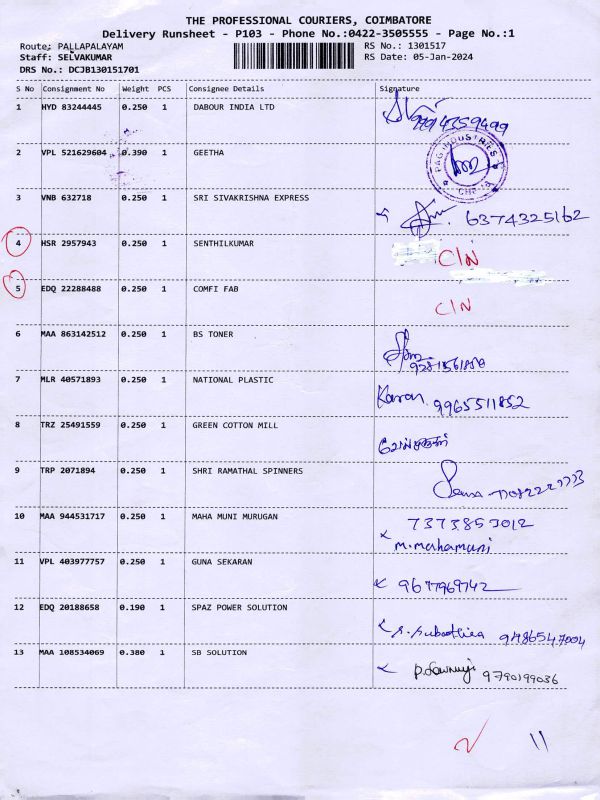 THE PROFESSIONAL COURIERS, COIMBATORE
Delivery Runsheet - P103 - Phone No.:0422-3505555 - Page No.:1
Route: PALLAPALAYAM RS No.: 1301517
Staff: SELVAKUMAR RS Date: 05-Jan-2024
DRS No.: DCJB130151701
S No Consignment No Weight PCS Consignee Details Signature
1 HYD 83244445 0.250 1 DABOUR INDIA LTD
2 VPL 521629604 0.390 1 GEETHA PAG INDUSTRIES
3 VNB 632718 0.250 1 SRI SIVAKRISHNA EXPRESS 6374325162
4 HSR 2957943 0.250 1 SENTHILKUMAR C/N
5 EDQ 22288488 0.250 1 COMFI FAB C/N
6 MAA 863142512 0.250 1 BS TONER
7 MLR 40571893 0.250 1 NATIONAL PLASTIC Karan. 9965511852
8 TRZ 25491559 0.250 1 GREEN COTTON MILL
9 TRP 2071894 0.250 1 SHRI RAMATHAL SPINNERS
10 MAA 944531717 0.250 1 MAHA MUNI MURUGAN 7373853012
M.Mahamuni
11 VPL 403977757 0.250 1 GUNA SEKARAN 9677969742
12 EDQ 20188658 0.190 1 SPAZ POWER SOLUTION 9786547004
13 MAA 108534069 0.380 1 SB SOLUTION 9790199036
2 11